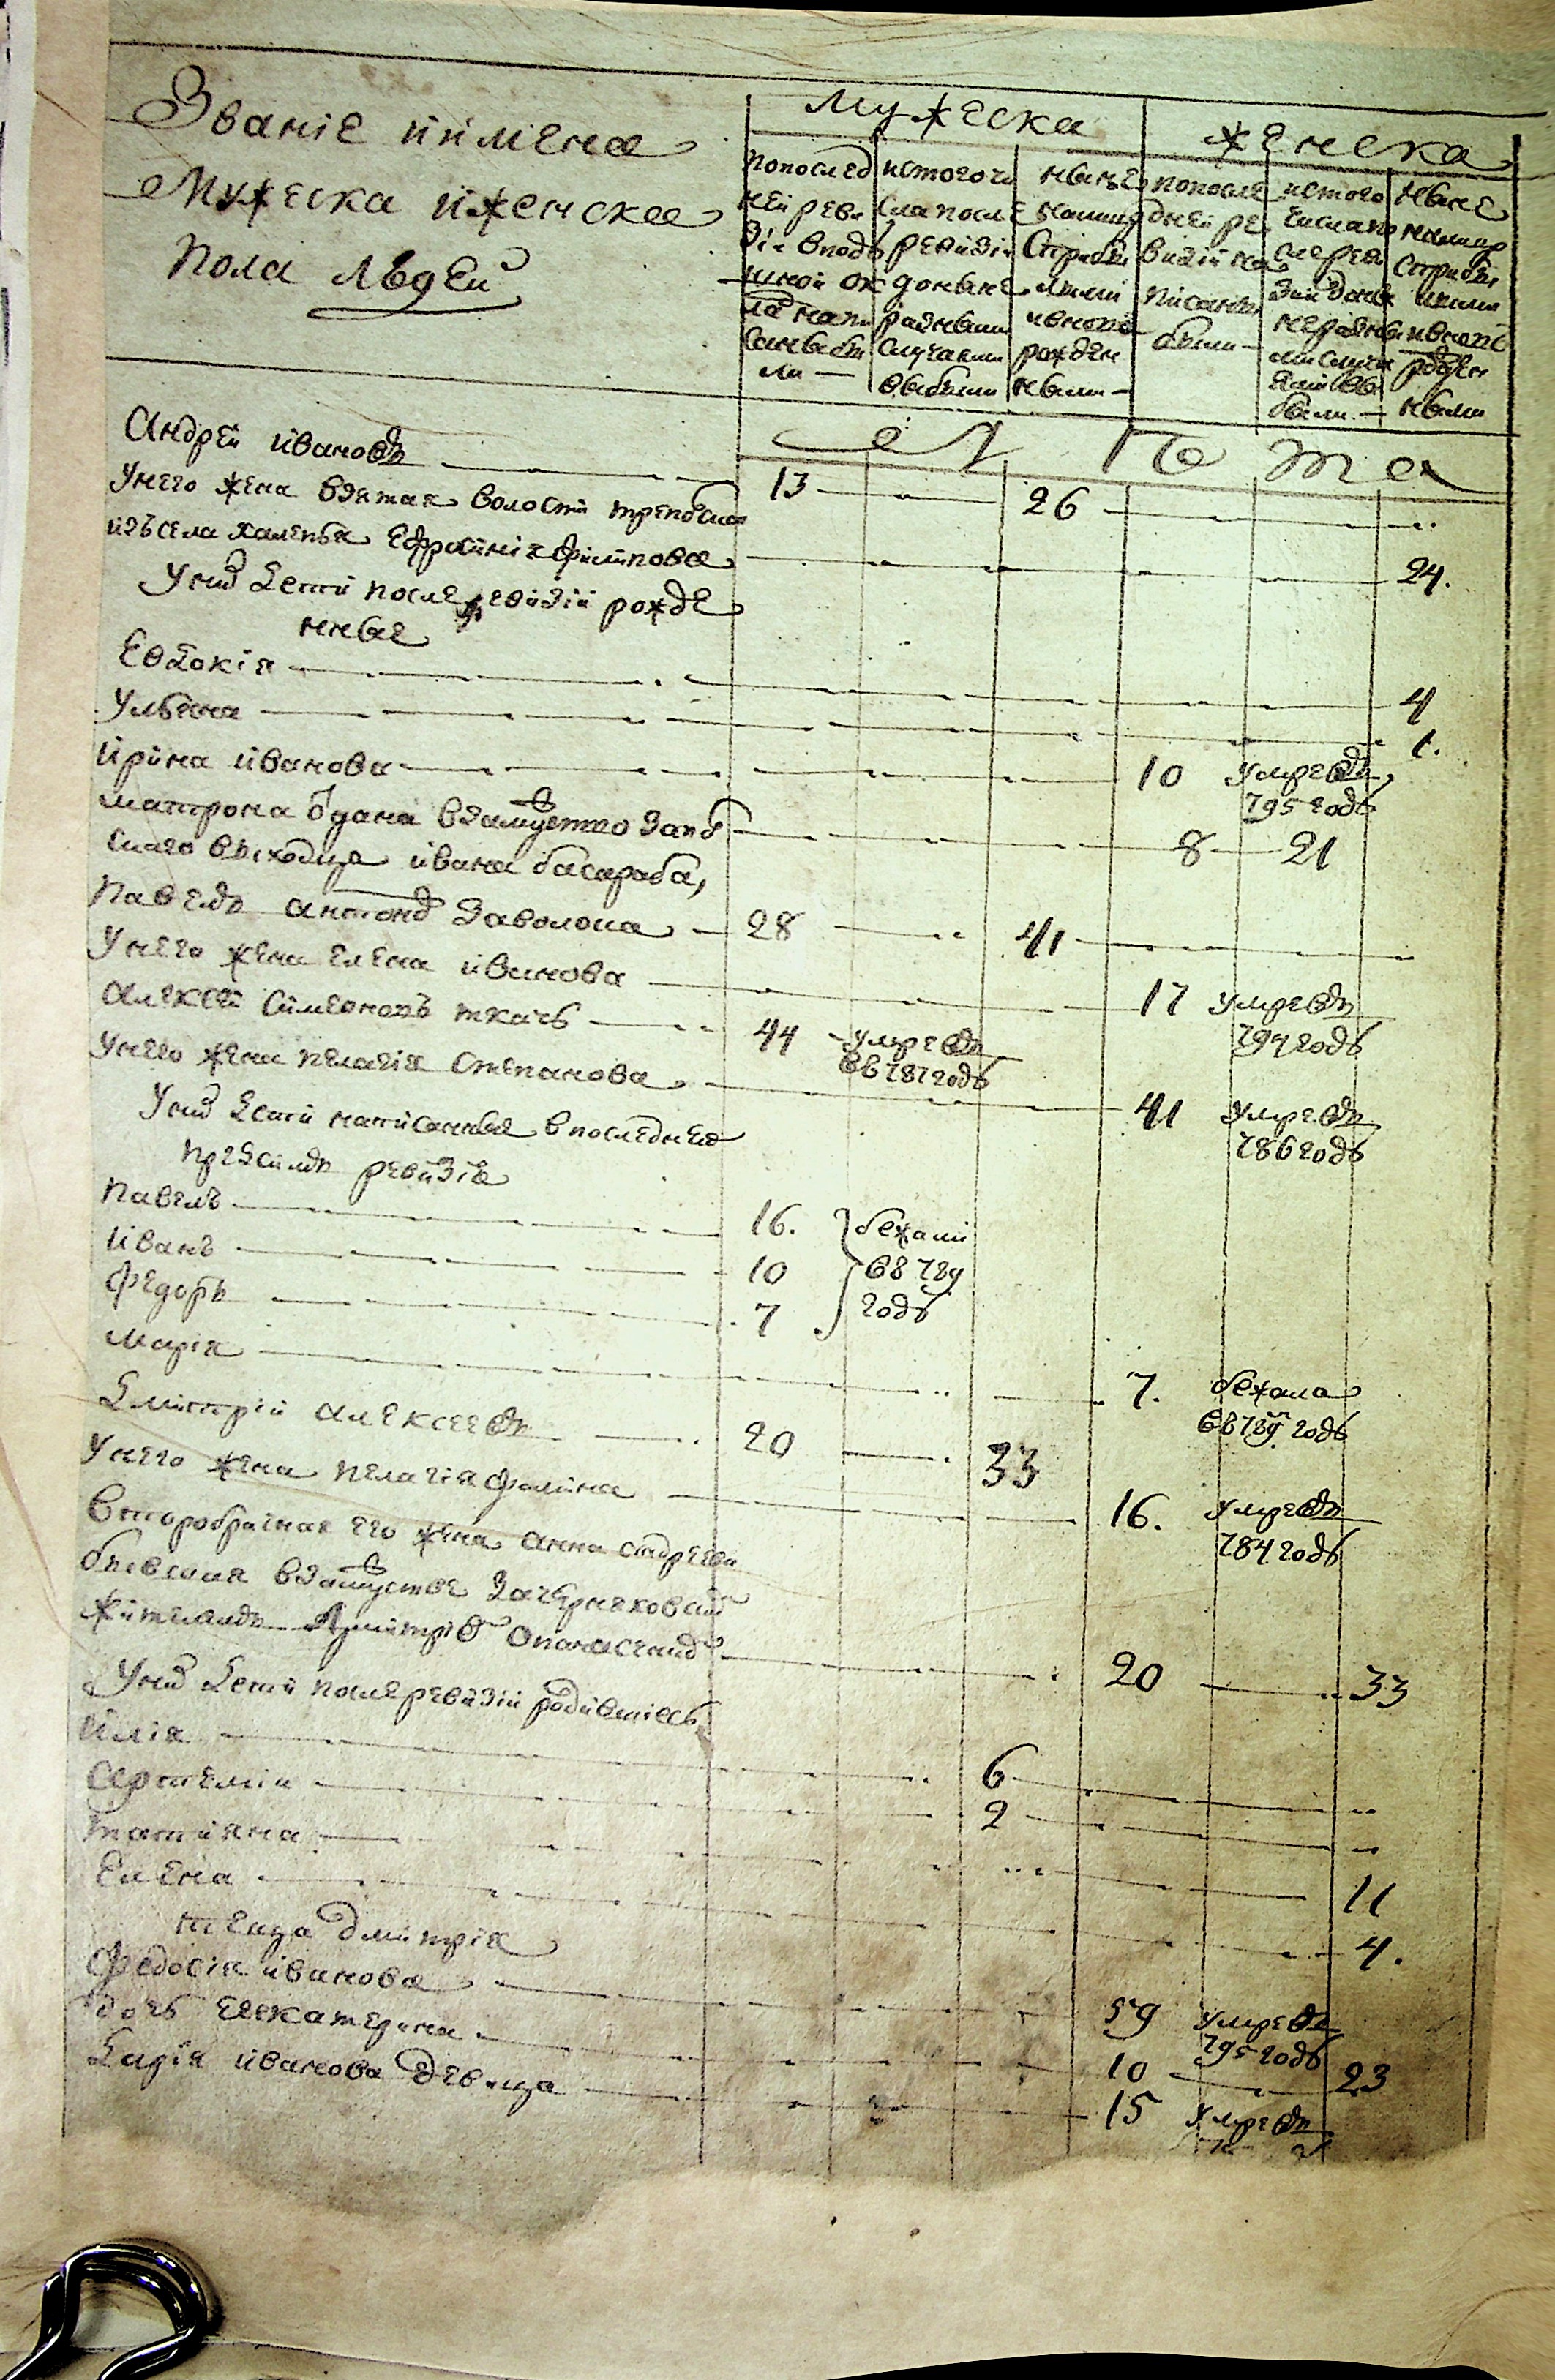 Званіе и имена
Мужеска и женска
Пола людей
Мужеска
женска
попослед ней реви зіи вподу шной ок ла напи саны бы ли —
ис того чи сла после ревизіи до ныне разными случаями выбыли
ныне на лицо с прибы лыми и вновь рожден ными —
попосле дней ре визіи на писаны были —
ис того числа по сле реви зии до ны не разны ми случа ями вы были —
ныне на лицо с прибы лыми и вновь рожден ными
Л е т а
Андрей Ивановъ 13 26
У него жена взятая волости
из села халепья Ефросинія Филипова 24.
У них дети после ревизіи рожде
нные
Евдокія 4
Ульяна 1.
Ирина иванова 10 умре въ
795 годѣ
матрона отдана взамужство за
выходца ивана басараба, 8 21
Павелъ антонов Заволока 28 41
У него жена елена иванова 17 умре въ
794 годѣ
алексей Симеоновъ ткачъ 44 умре въ
въ 787 годѣ
У него жена пелагія Степанова 41 умре въ
786 годѣ
У них дети написанные в последнею
пред симъ ревизіею
Павелъ 16. бежали
Иванъ 10 въ 789
Федоръ 7 годѣ
Марія 7. бежала
въ 789 годѣ
Дмитрій алексеевъ 20 33
У него жена пелагія фомина 16. умре въ
784 годѣ
Второбрачная его жена анна андреева
бывшая взамужстве за
жителемъ Дмитріем 20 33
У них дети после ревизіи родившіесь
Илія 6
Артемій 2
татияна 11
Елена 4.
теща дмитрія
Федосія иванова 59 умре въ
795 годѣ
дочь Екатерина 10 23
иванова девица 15 умре въ